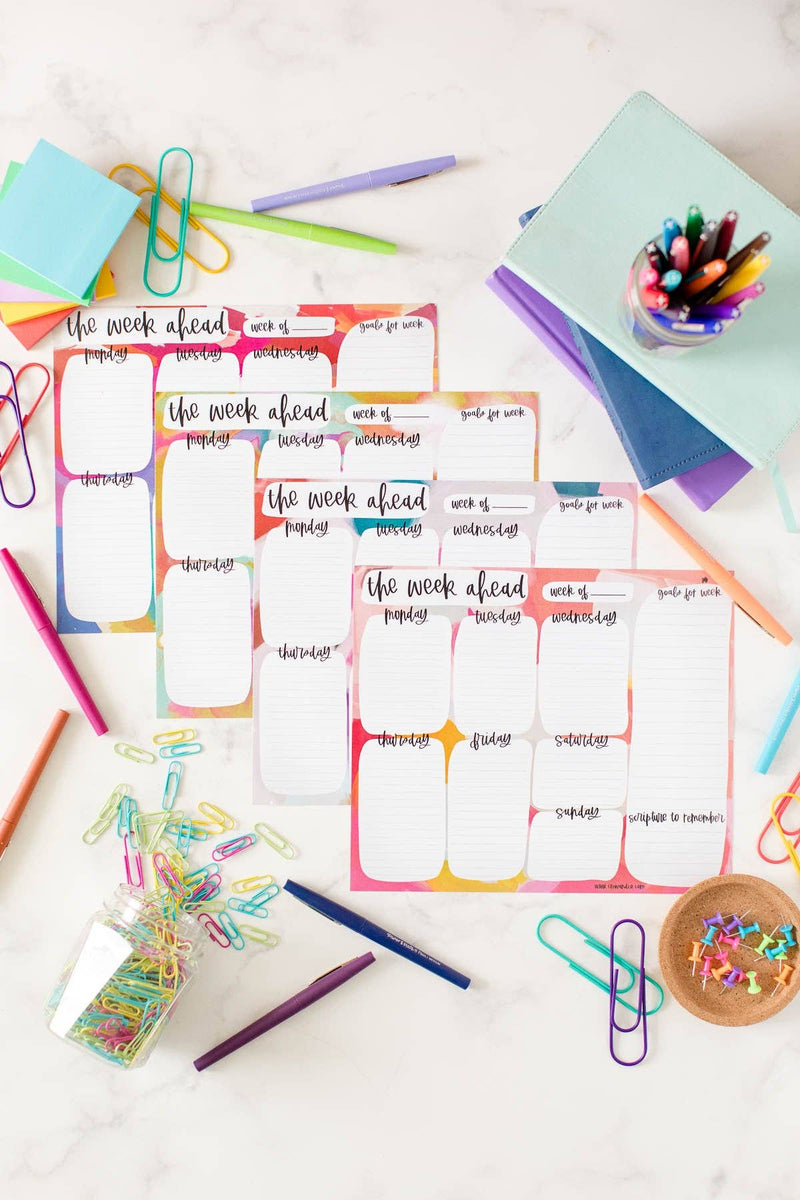 the week ahead
week of
goals for week
monday
tuesday
wednesday
thursday
the week ahead
week of
goals for week
monday
tuesday
wednesday
thursday
the week ahead
week of
goals for week
monday
tuesday
wednesday
thursday
the week ahead
week of
goals for week
monday
tuesday
wednesday
thursday
friday
saturday
sunday
scripture to remember